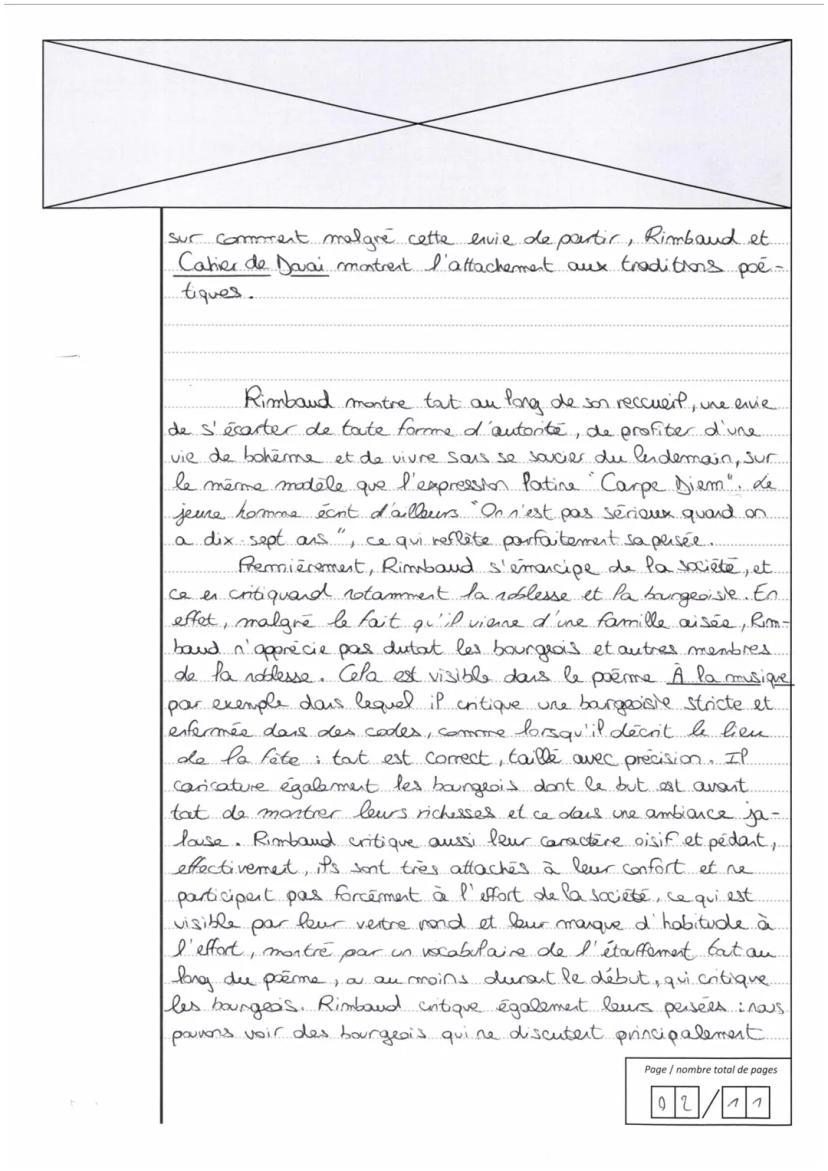 sur comment malgré cette envie de partir, Rimbaud et
Cahier de Douai montrent l'attachement aux traditions poé-
tiques.
Rimbaud montre tout au long de son reccueil, une envie
de s'écarter de toute forme d'autorité, de profiter d'une
vie de bohème et de vivre sans se soucier du lendemain, sur
le même modèle que l'expression latine "Carpe Diem". Le
jeune homme écrit d'ailleurs "On n'est pas sérieux quand on
a dix-sept ans", ce qui reflète parfaitement sa pensée.
Premièrement, Rimbaud s'émancipe de la société, et
ce en critiquand notamment la noblesse et la bourgeoisie. En
effet, malgré le fait qu'il vienne d'une famille aisée, Rim-
baud n'apprécie pas dutout les bourgeois et autres membres
de la noblesse. Cela est visible dans le poème À la musique
par exemple dans lequel il critique une bourgeoisie stricte et
enfermée dans des codes, comme lorsqu'il décrit le lieu
de la fête : tout est correct, taillé avec précision. Il
caricature également les bourgeois dont le but est avant
tout de montrer leurs richesses et ce dans une ambiance ja-
louse. Rimbaud critique aussi leur caractère oisif et pédant,
effectivement, ils sont très attachés à leur confort et ne
participent pas forcément à l'effort de la société, ce qui est
visible par leur ventre rond et leur manque d'habitude à
l'effort, montré par un vocabulaire de l'étouffement tout au
long du poème, ou au moins durant le début, qui critique
les bourgeois. Rimbaud critique également leurs pensées : nous
pouvons voir des bourgeois qui ne discutent principalement
Page / nombre total de pages
02/11